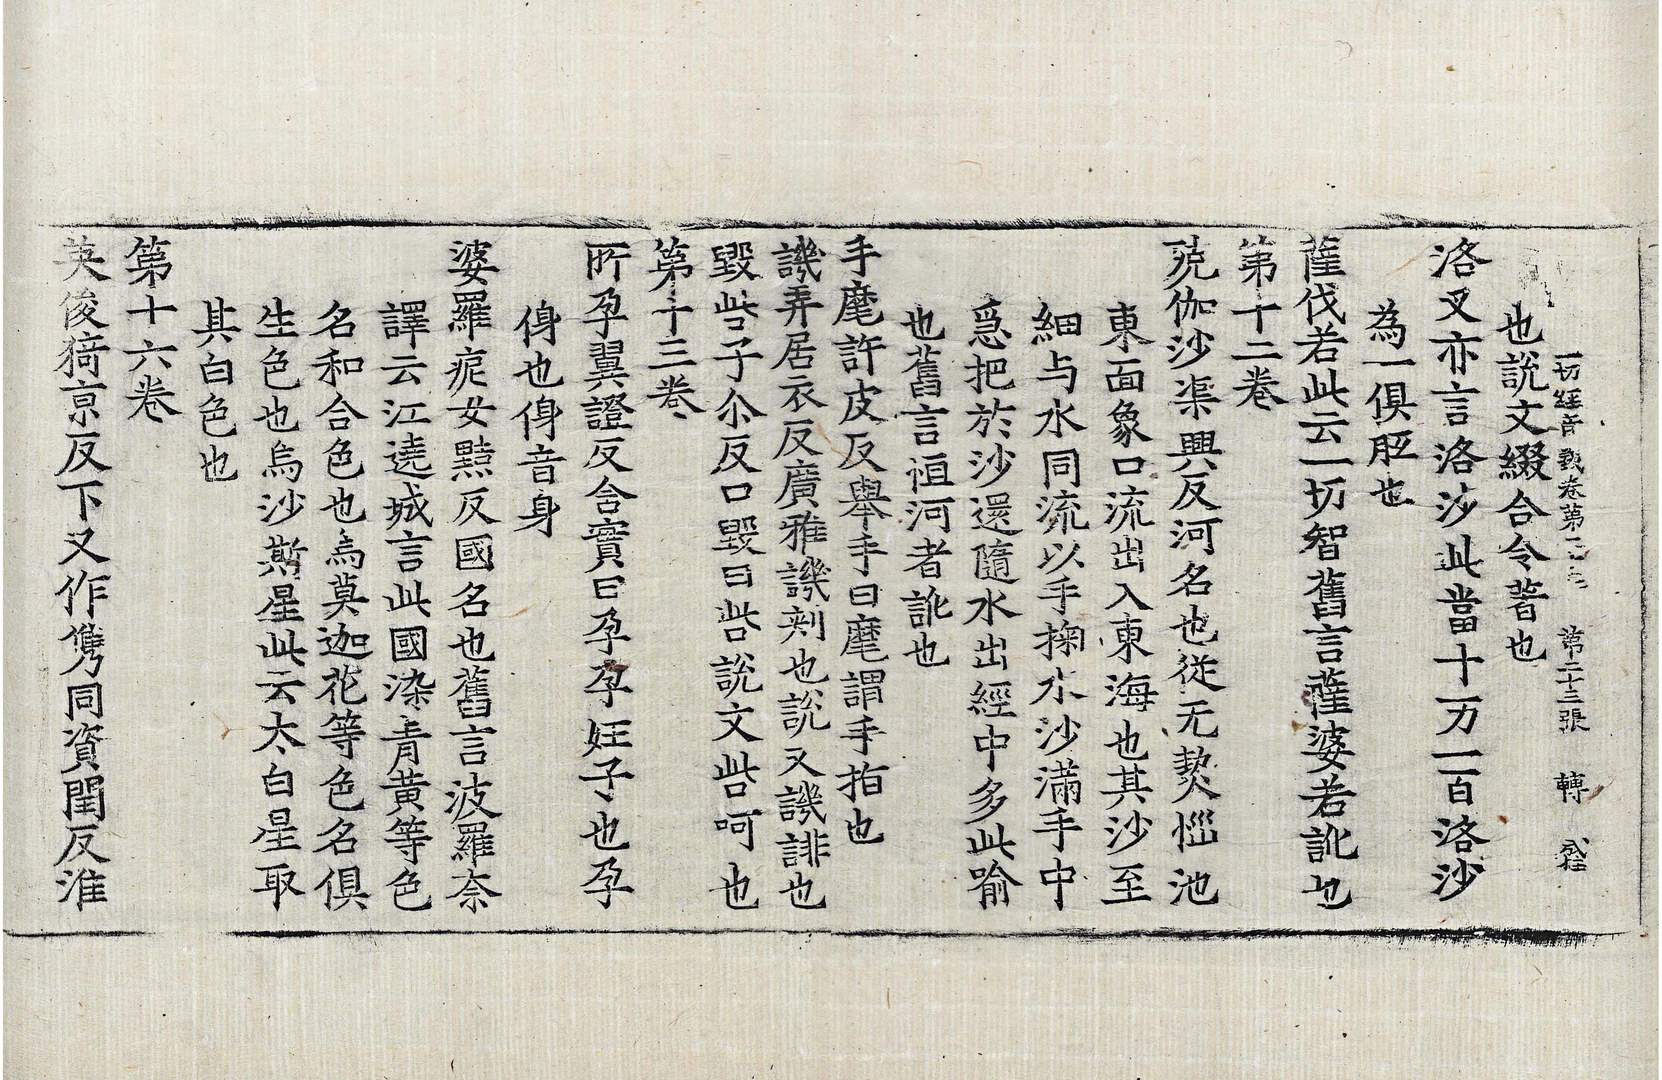 一切經音義卷第二 第二十三張 轉
也說文綴合令著也
洛叉亦言洛沙此當十万一百洛沙
為一俱胝也
薩伐若此云一切智舊言薩婆若訛也
第十二卷
殑伽沙渠興反河名也從无熱惱池
東面象口流出入東海也其沙至
細与水同流以手掬水沙滿手中
爲把於沙還隨水出經中多此喻
也舊言恒河者訛也
手麾許皮反舉手曰麾謂手指也
譏弄居衣反廣雅譏刾也說文譏誹也
毀呰子尒反口毀曰呰說文呰呵也
第十三卷
所孕翼證反含實曰孕孕妊子也孕
㑗也㑗音身
婆羅痆女黠反國名也舊言波羅奈
譯云江遶城言此國染青黃等色
名和合色也烏莫迦花等色名俱
生色也烏沙斯星此云太白星取
其白色也
第十六卷
英俊猗京反下又作㑺同資閏反淮